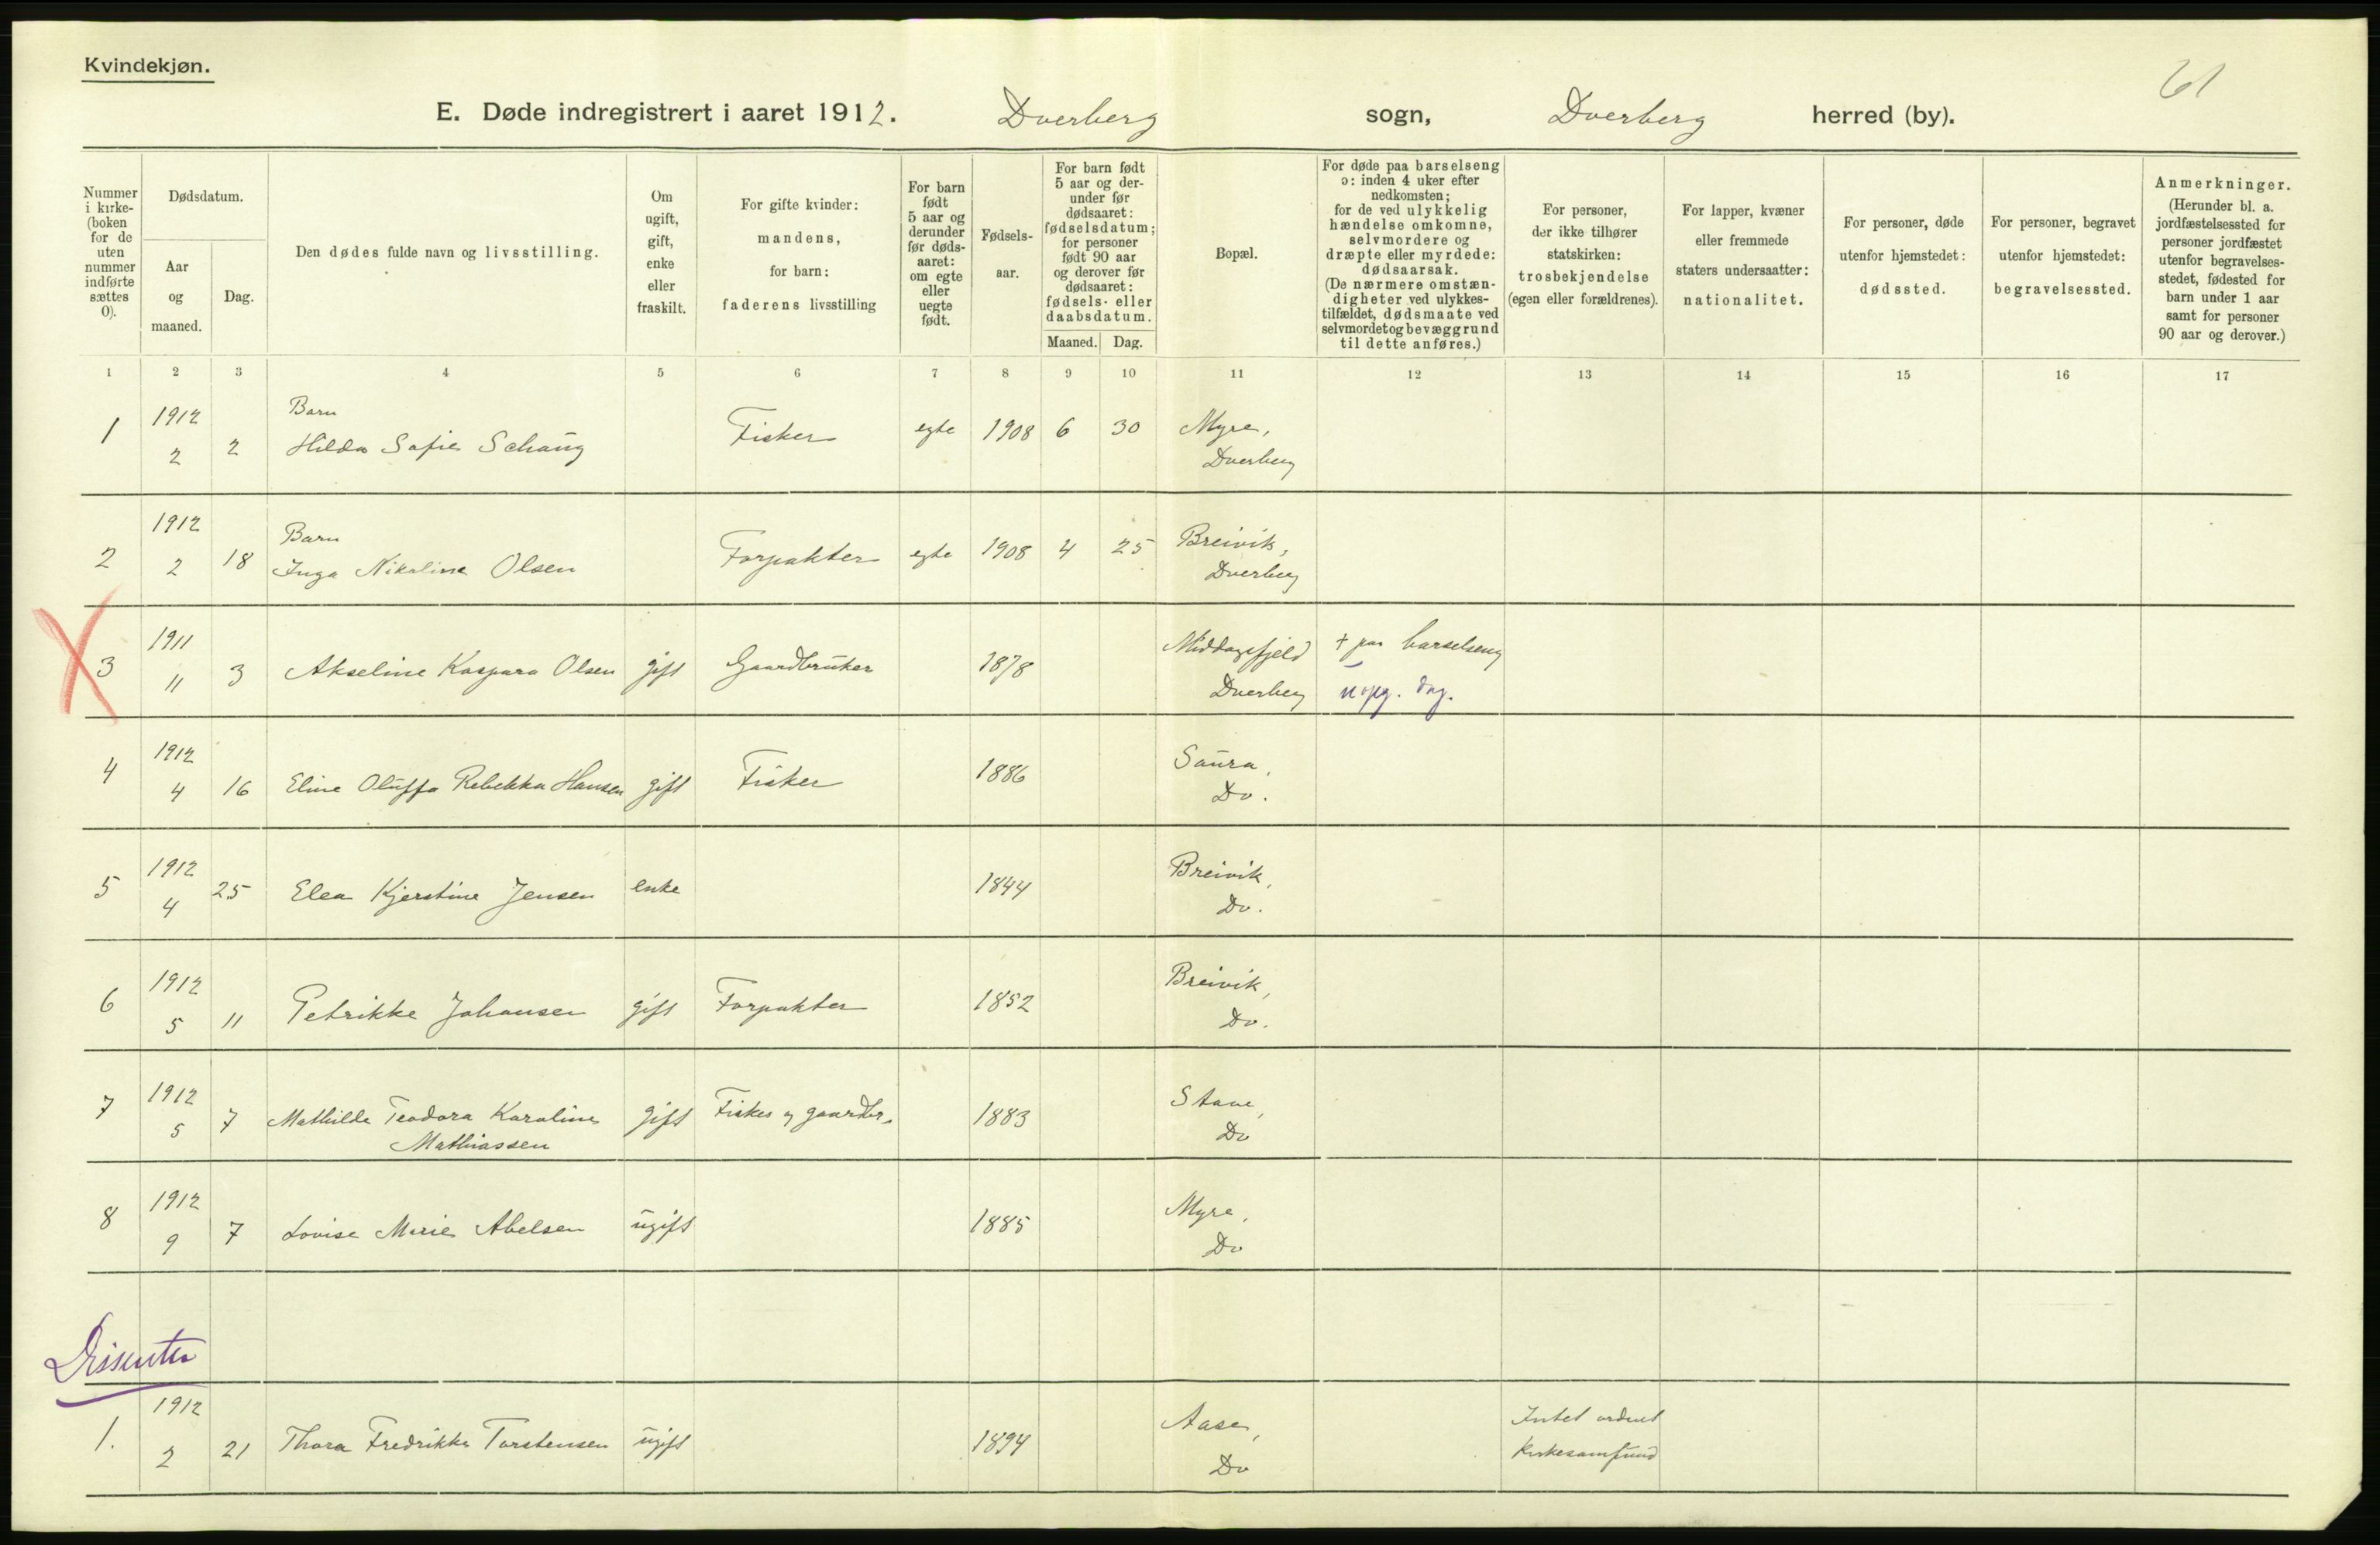 Kvindekjøn.
61
E. Døde indregistrert i aaret 1912. Dverberg sogn, Dverberg herred (by).
Nummer i kirke-(boken for de uten nummer indførte sættes 0).
Dødsdatum.
Aar og maaned.
Dag.
Den dødes fulde navn og livsstilling.
Om ugift, gift, enke eller fraskilt.
For gifte kvinder: mandens, for barn: faderens livsstilling
For barn født 5 aar og derunder før døds-aaret: om egte eller uegte født.
Fødsels-aar.
For barn født 5 aar og der-under før dødsaaret: fødselsdatum; for personer født 90 aar og derover før dødsaaret: fødsels- eller daabsdatum.
Maaned. Dag.
Bopæl.
For døde paa barselseng ɔ: inden 4 uker efter nedkomsten; for de ved ulykkelig hændelse omkomne, selvmordere og dræpte eller myrdede: dødsaarsak. (De nærmere omstæn-digheter ved ulykkes-tilfældet, dødsmaate ved selvmordet og bevæggrund til dette anføres.)
For personer, der ikke tilhører statskirken: trosbekjendelse (egen eller forældrenes).
For lapper, kvæner eller fremmede staters undersaatter: nationalitet.
For personer, døde utenfor hjemstedet: dødssted.
For personer, begravet utenfor hjemstedet: begravelsessted.
Anmerkninger. (Herunder bl. a. jordfæstelsessted for personer jordfæstet utenfor begravelses-stedet, fødested for barn under 1 aar samt for personer 90 aar og derover.)
1 2 3 4 5 6 7 8 9 10 11 12 13 14 15 16 17
1 1912 2 2 Barn Hilda Sofie Schaug Fisker egte 1908 6 30 Myre, Dverberg
2 1912 2 18 Barn Inga Nikoline Olsen Forpakter egte 1908 4 25 Breivik, Dverberg
3 1911 11 3 Akseline Kaspara Olsen gift Gaardbruker 1878 Middagsfjeld Dverberg + paa barselseng uopg. dag.
4 1912 4 16 Eline Oluffa Rebekka Hansen gift Fisker 1886 Saura, Do.
5 1912 4 25 Elea Kjerstine Jensen enke 1844 Breivik, Do.
6 1912 5 11 Petrikke Johansen gift Forpakter 1852 Breivik, Do.
7 1912 5 7 Mathilde Teodora Karoline Mathiassen gift Fisker og gaardbr. 1883 Stave, Do
8 1912 9 7 Lovise Marie Abelsen ugift 1885 Myre, Do
Dissenter
1. 1912 2 21 Thora Fredrikke Torstensen ugift 1894 Aase, Do Intet ordnet kirkesamfund